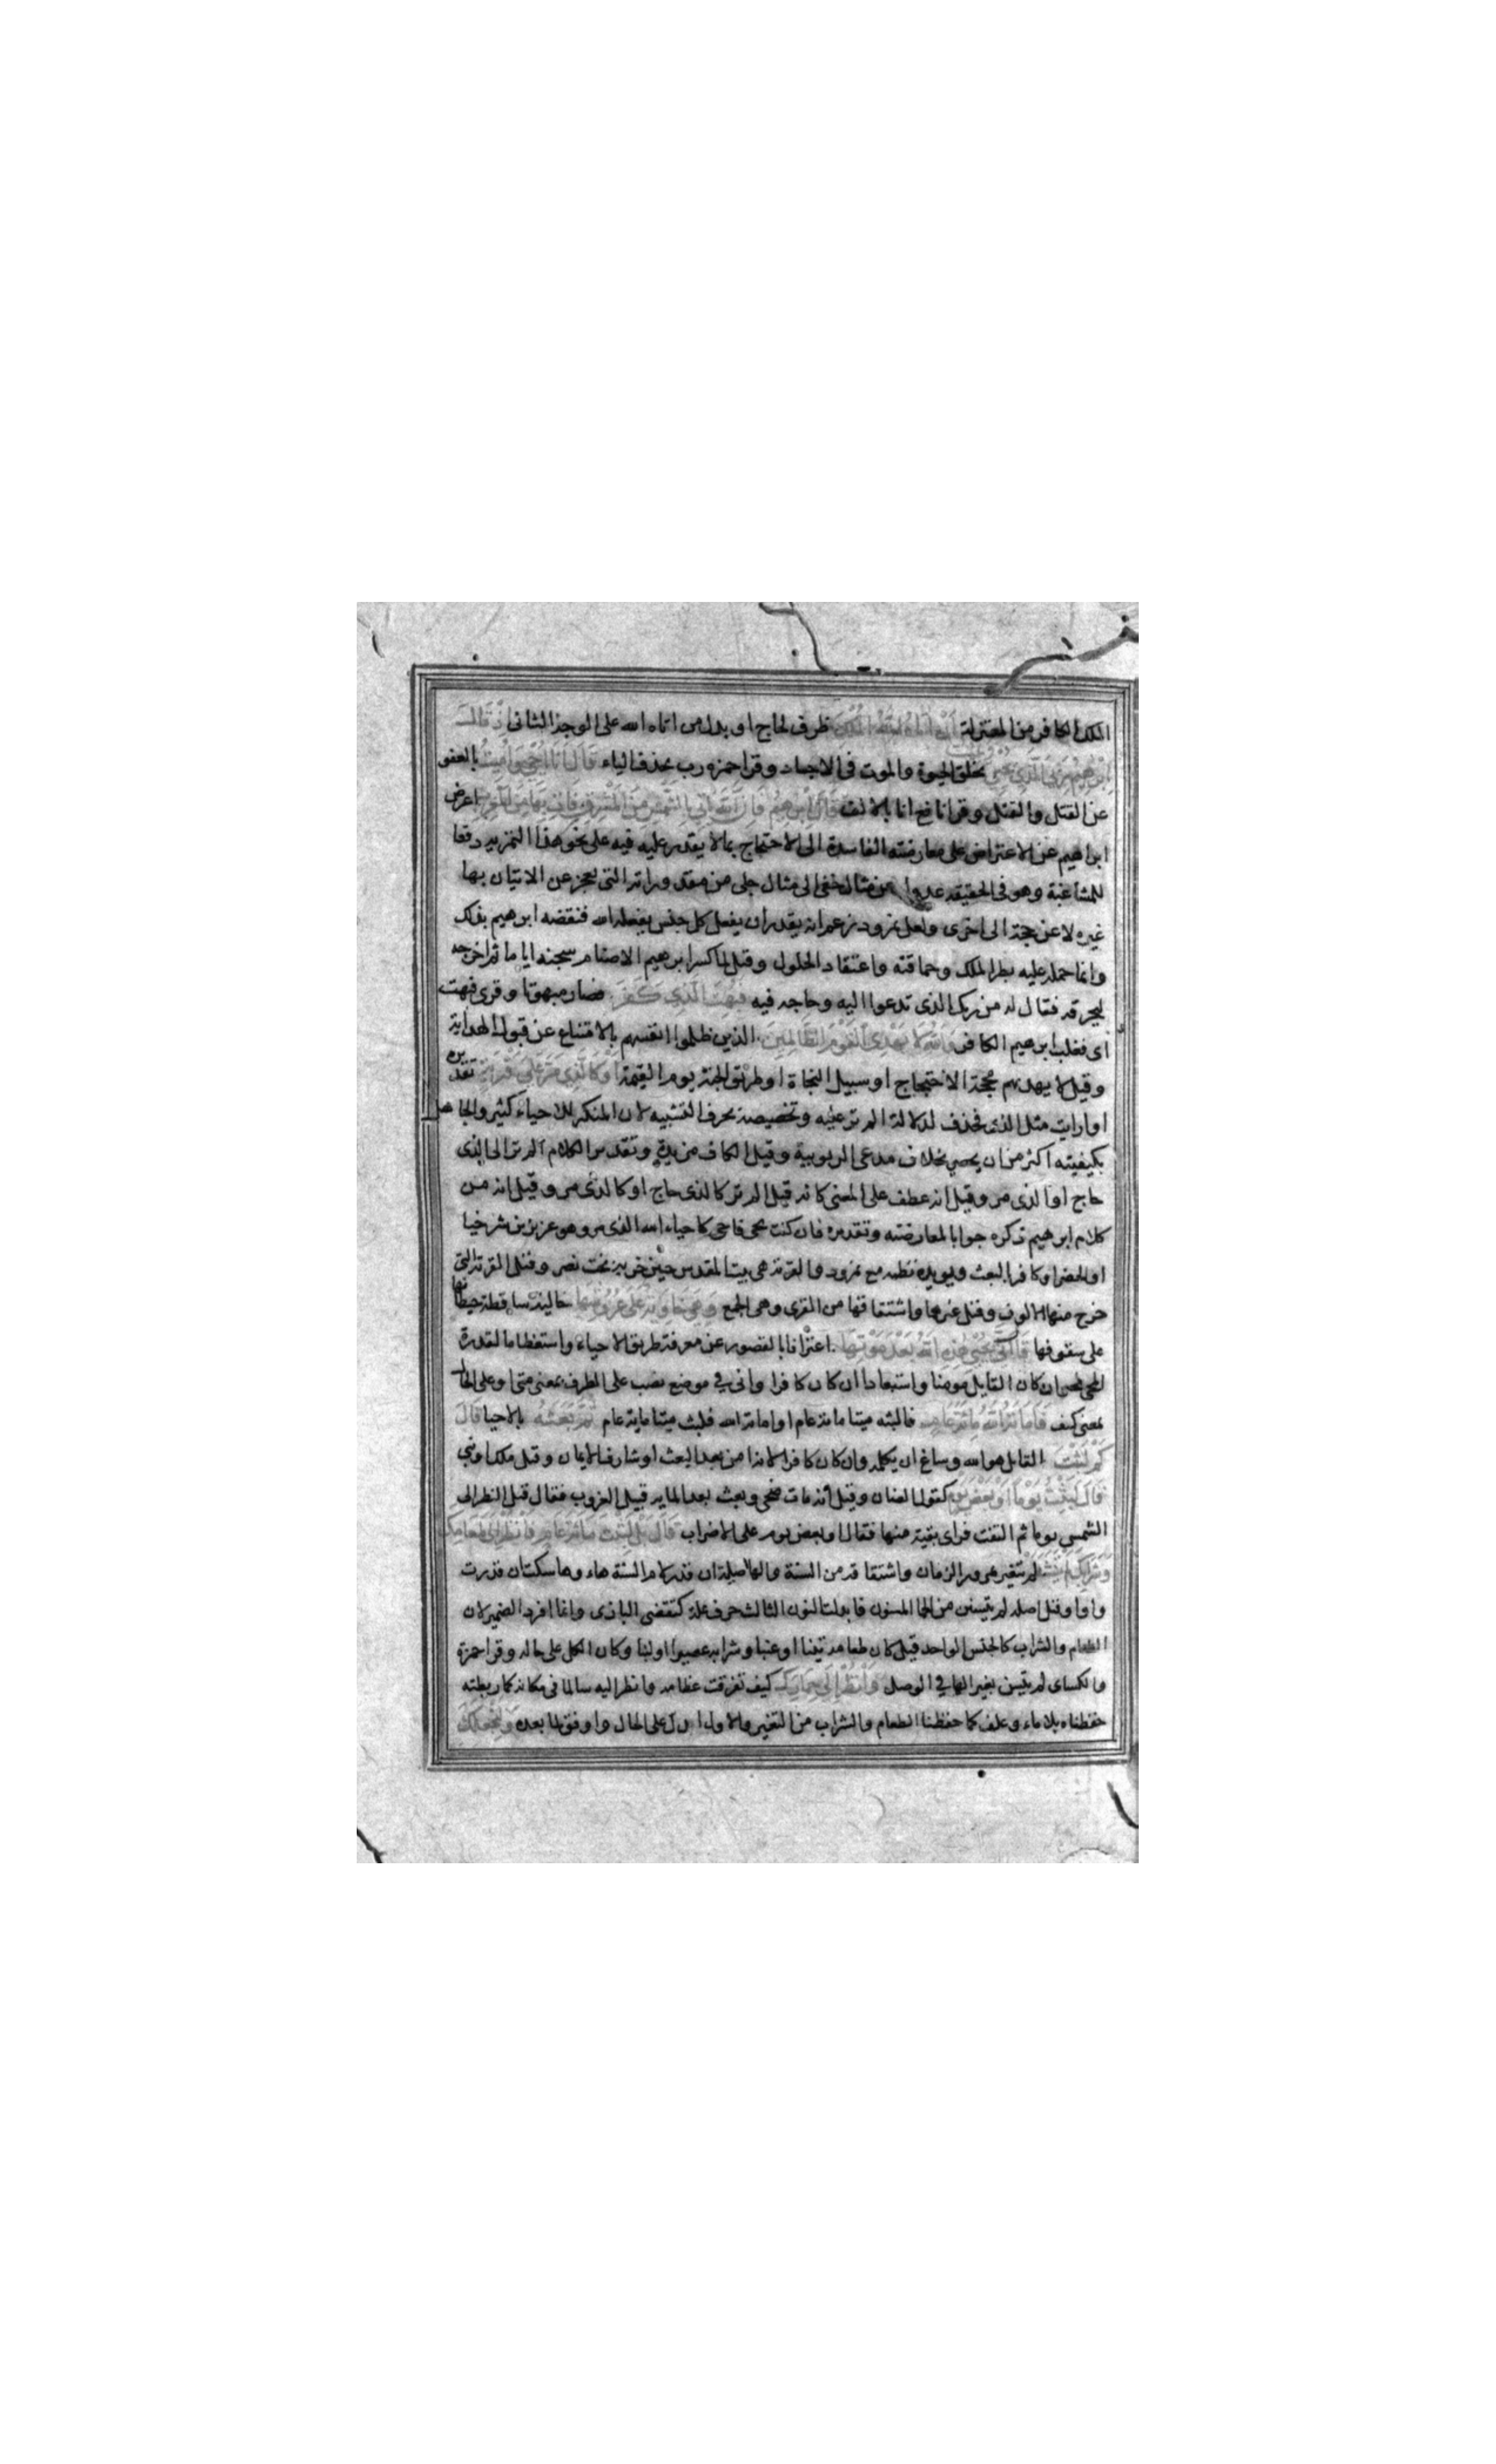 الملك الكافر من المعتزلة ان اتاه الله الملك ظرف لحاج او بدل من اتاه الله على الوجه الثانى اذ قال
ابرهيم ربى الذى يحيى ويميت بخلق الحيوة والموت فى الاجساد وقرا حمزه رب بحذف الياء قال انا احيى واميت بالعفو
عن القتل والقتل وقرا نافع انا بالالف قال ابرهيم فان الله ياتى بالشمس من المشرق فات بها من المغرب اعرض
ابراهيم عن الاعتراض على معارضته الفاسدة الى الاحتجاج بمالا يقدر عليه فيه على نحو هذا التمزيه دفعا
للمشاغبة وهو فى الحقيقه عدول عن مثال خفى الى مثال جلى من مقدوراته التى يعجز عن الاتيان بها
غيره لا عن حجة الى اخرى ولعل نمرود زعم انه يقدر ان يفعل كل جنس يفعله الله فنقضه ابرهيم بذلك
وانما حمله عليه بطر الملك وحماقته واعتقاد الحلول وقيل لما كسر ابرهيم الاصنام سجنه اياما ثم اخرجه
ليحرقه فقال له من ربك الذى تدعوا اليه وحاجه فيه فبهت الذى كفر فصار مبهوتا وقرى فبهت
اى فغلب ابرهيم الكافر والله لا يهدى القوم الظالمين الذين ظلموا انفسهم بالامتناع عن قبول الهداية
وقيل لا يهديهم محجة الاحتجاج او سبيل النجاة او طريق الجنة يوم القيمة او كالذى مر على قرية تقديره
او ارايت مثل الذى فحذف لدلالة الم تر عليه وتخصيصه بحرف التشبيه لان المنكر للاحياء كثير والجاهل
بكيفيته اكثر من ان يحصى بخلاف مدعى الربوبية وقيل الكاف مزيدة وتقدير الكلام الم تر الى الذى
حاج او الذى مر وقيل انه عطف على المعنى كانه قيل الم تر كالذى حاج او كالذى مر وقيل انه من
كلام ابرهيم ذكره جوابا لمعارضته وتقديره فان كنت تحيى فاحى كاحياء الله الذى مر وهو عزير بن شرخيا
او الخضر او كافر بالبعث ويويده نظمه مع نمرود والقرية هى بيت المقدس حين خربه بخت نصر وقيل القرية التى
خرج منها الالوف وقيل غيرها واشتقاقها من القرى وهى الجمع وهى خاوية على عروشها خالية ساقطة حيطانها
على سقوفها قال انى يحيى هذه الله بعد موتها اعترافا بالقصور عن معرفة طريق الاحياء واستعظاما لقدرة
المحيى ان كان القايل مومنا واستبعادا ان كان كافرا وانى فى موضع نصب على الظرف بمعنى متى او على الحال
بمعنى كيف فاماته الله مائة عام فالبثه ميتا مائة عام او اماته الله فلبث ميتا ماية عام ثم بعثه بالاحيا قال
كم لبثت القايل هو الله وساغ ان يكلمه وان كان كافرا لانه امن بعد البعث او شارف الايمان وقيل ملك او نبى
قال لبثت يوما او بعض يوم كقول الظان وقيل انه مات ضحى وبعث بعد الماية قبيل الغروب فقال قبل النظر الى
الشمس يوما ثم التفت فراى بقية منها فقال او بعض يوم على الاضراب قال بل لبثت مائة عام فانظر الى طعامك
وشرابك لم يتسنه لم يتغير بمرور الزمان واشتقاقه من السنة والهاء اصلية ان قدر لام السنة هاء وهاء سكت ان قدرت
واوا وقيل اصله لم يتسنن من الحما المسنون فابدلت النون الثالث حرف علة كتقضى البازى وانما افرد الضمير لان
الطعام والشراب كالجنس الواحد قيل كان طعامه تينا او عنبا وشرابه عصيرا او لبنا وكان الكل على حاله وقرا حمزة
والكساى لم يتسن بغير الهاء فى الوصل وانظر الى حمارك كيف تفرقت عظامه وانظر اليه سالما فى مكانه كما ربطته
حفظناه بلا ماء وعلف كما حفظنا الطعام والشراب من التغير والاول ادل على الحال واوفق لما بعده ولنجعلك